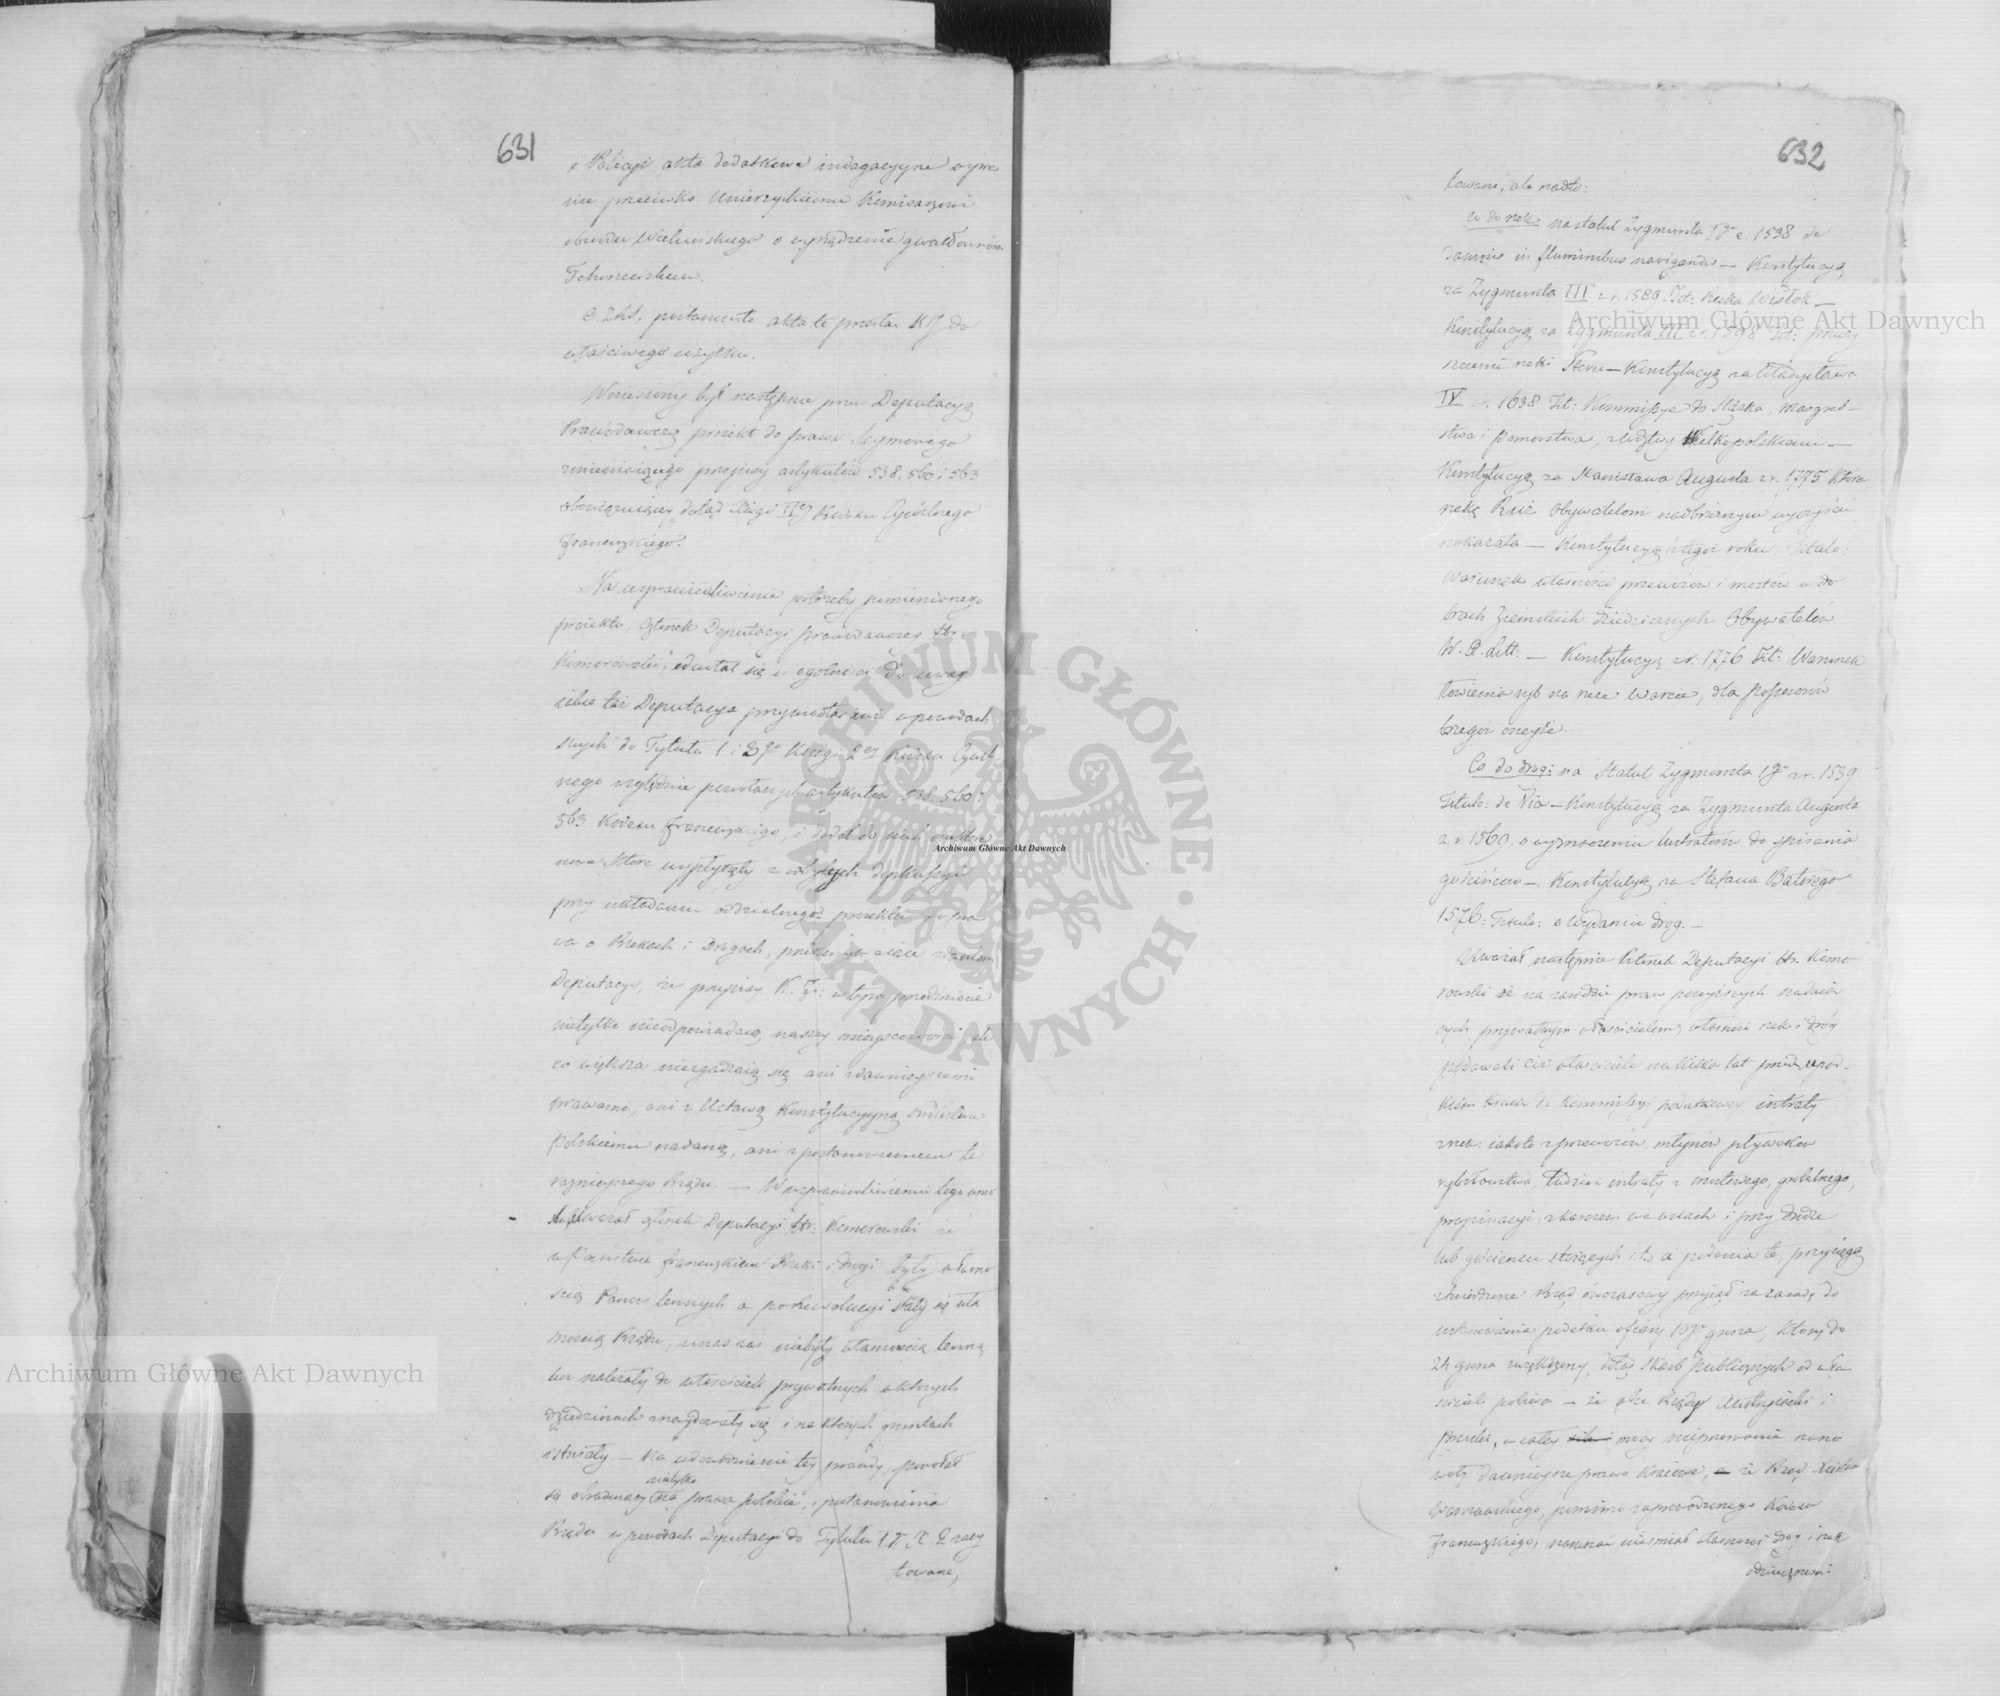 631
i Policyi akta dodatkowe indagacyjne w spra
wie przeciwko Unierzyskiemu Kommissarzowi
obwodu Wieluńskiego o wyrządzenie gwałtowności
postanowiła akta te przesłać K. S. do
właściwego użytku.
Wniesiony był następnie przez Deputacyą
Prawodawczą projekt do prawa Seymowego
zmieniaiącego przepisy artykułów 538. 560 i 563
obowiązuiącey dotąd Xięgi IIey Kodexu Cywilnego
francuzkiego.
Na usprawiedliwienie potrzeby pomienionego
proiektu, Członek Deputacyi prawodawczey Hr.
Komorowski, odwołał się w ogólności do uwag
iakie taż Deputacya przywiodła iuż w powodach
swych do Tytułu 1 i 3go Xięgi 2ey Kodexu Cywil
nego względnie powołanych artykułów 538. 560 i
563 Kodexu francuzkiego, i
nowe które wypłynęły z odbytych dyskussyi
przy układaniu oddzielnego proiektu do pra
wa o Rzekach i Drogach,
Deputacyi, że przepisy K. Fr: w tym przedmiocie
nietylko nieodpowiadaią naszey mieyscowości, ale
co większa niezgadzaią się ani z dawnieyszemi
prawami, ani z Ustawą Konstytucyyną Królestwu
Polskiemu nadaną, ani z postanowieniem te
raznieyszego Rządu. — W usprawiedliwieniu tego
uważał członek Deputacyi Hr. Komorowski że
w Państwie francuzkiem Rzeki i drogi były własno
ścią Panów lennych a po Rewolucyi stały się wła
snością Rządu, u nas zaś niebyły własnością lenną
lecz należały do właścicieli prywatnych w których
dziedzinach znaydowały się i na których gruntach
istniały. — Na udowodnienie tey prawdy, powołał
nietylko
są obszerniey na prawa polskie, i postanowienia
Rządu w powodach Deputacyi do Tytułu I
towane,
632
towane, ale nadto:
co do rzek: na statut Zygmunta Igo r. 1538 de
damnis in fluminibus navigandis — Konstytucyą
za Zygmunta III z r. 1589. Tit: Rzeka Wisłok —
Konstytucyą za Zygmunta III z r. 1598 Tit:
rzeki — Konstytucyą za Władysława
IV z r. 1638 Tit: Kommissye do Sląska, Margrab-
stwa i Pomorstwa, z Wielkopolskiemi —
Konstytucyą za Stanisława Augusta z r. 1775 która
rzekę Obywatelom nadbrzeżnym wyczyścić
nakazała — Konstytucyą z tegoż roku, Titulo:
Warunek własności przewozów i mostów w do
brach Ziemskich dziedzicznych Obywatelów
W. X. Litt: — Konstytucyą z r. 1776 Tit: Warunek
łowienia ryb na rzece Warcie, dla possessorów
brzegów oneyże.
Co do dróg: na Statut Zygmunta Igo z r. 1539
Titulo: de Via — Konstytucyą za Zygmunta Augusta
z r. 1569. o wyznaczeniu lustratorów do spisania
gościńców —. Konstytucyą za Stefana Batorego
1576: Titulo: o dróg. —
Uważał następnie Członek Deputacyi Hr. Komo-
rowski że na zasadzie praw powyższych nadaią
cych prywatnym właścicielom, własność rzek i dróg
podawali ciż właściciele na kilka lat przed upad-
kiem kraiu do Kommissyi podatkowey intraty
z rzek: iakoto z przewozów, młynów pływaków
rybołowstwa, tudzież intraty z mostowego, grobelnego,
propinacyi, z karczem we wsiach i przy drodze
lub gościńcu stoiących i t. d. a podania te, przysięgą
stwierdzone Rząd ówczasowy przyiął za zasadę do
ustanowienia podatku ofiary 10go grosza, który do
24 grosza zwiększony, dotąd Skarb publiczny od wła
ścicieli pobiera — że obce Rządy Austryiacki i
Pruski, w całey mocy
dawnieysze prawa kraiowe, że Rząd Xięstwa
Warszawskiego, pomimo zaprowadzonego Kodexu
francuzkiego, naruszać nieśmiał własności dróg i rzek